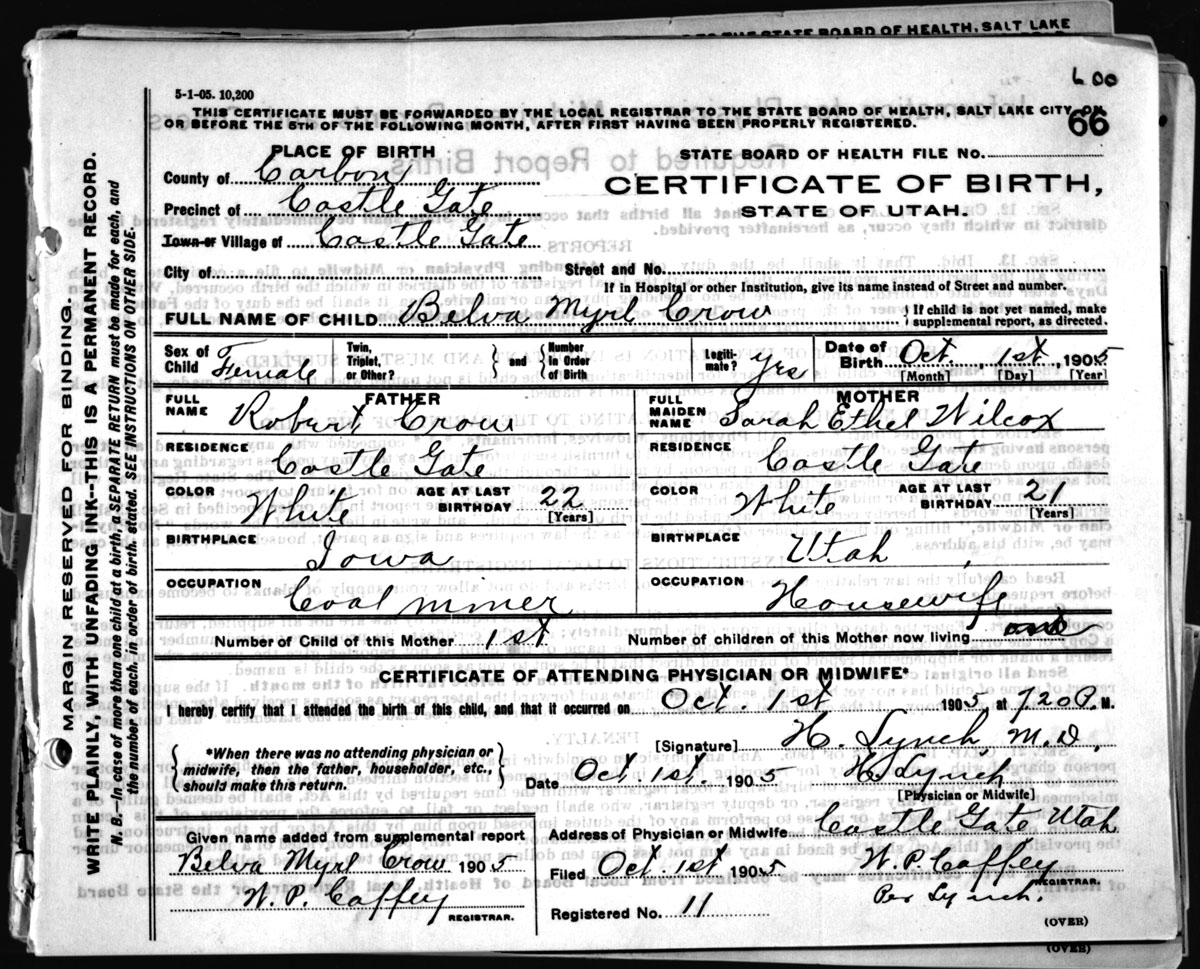 TO THE STATE BOARD OF HEALTH, SALT LAKE
5-1-05. 10,200
600
THIS CERTIFICATE MUST BE FORWARDED BY THE LOCAL REGISTRAR TO THE STATE BOARD OF HEALTH, SALT LAKE CITY, ON
OR BEFORE THE 5TH OF THE FOLLOWING MONTH, AFTER FIRST HAVING BEEN PROPERLY REGISTERED.
66
PLACE OF BIRTH
STATE BOARD OF HEALTH FILE No.
County of Carbon
CERTIFICATE OF BIRTH,
Precinct of Castle Gate
STATE OF UTAH.
Town or Village of Castle Gate
City of Street and No.
If in Hospital or other Institution, give its name instead of Street and number.
FULL NAME OF CHILD Belva Myrl Crow { If child is not yet named, make supplemental report, as directed.
Sex of Child Female Twin, Triplet, or Other? } and { Number in Order of Birth Legitimate? Yes Date of Birth Oct. 1st, 1905
[Month] [Day] [Year]
FATHER MOTHER
FULL NAME Robert Crow FULL MAIDEN NAME Sarah Ethel Wilcox
RESIDENCE Castle Gate RESIDENCE Castle Gate
COLOR White AGE AT LAST BIRTHDAY 22 [Years] COLOR White AGE AT LAST BIRTHDAY 21 [Years]
BIRTHPLACE Iowa BIRTHPLACE Utah
OCCUPATION Coal miner OCCUPATION Housewife
Number of Child of this Mother 1st Number of children of this Mother now living one
CERTIFICATE OF ATTENDING PHYSICIAN OR MIDWIFE*
I hereby certify that I attended the birth of this child, and that it occurred on Oct. 1st 1905 at 720 P. M.
{ *When there was no attending physician or midwife, then the father, householder, etc., should make this return. }
[Signature] H. Lynch, M.D.
Date Oct 1st 1905 H. Lynch
[Physician or Midwife]
Given name added from supplemental report
Belva Myrl Crow 1905
W. P. Caffey
REGISTRAR.
Address of Physician or Midwife Castle Gate Utah
Filed Oct. 1st 1905 W. P. Caffey
REGISTRAR.
Per Lynch.
Registered No. 11
(OVER)
(OVER)
MARGIN RESERVED FOR BINDING.
WRITE PLAINLY, WITH UNFADING INK--THIS IS A PERMANENT RECORD.
N. B.--In case of more than one child at a birth, a SEPARATE RETURN must be made for each, and
the number of each, in order of birth, stated. SEE INSTRUCTIONS ON OTHER SIDE.